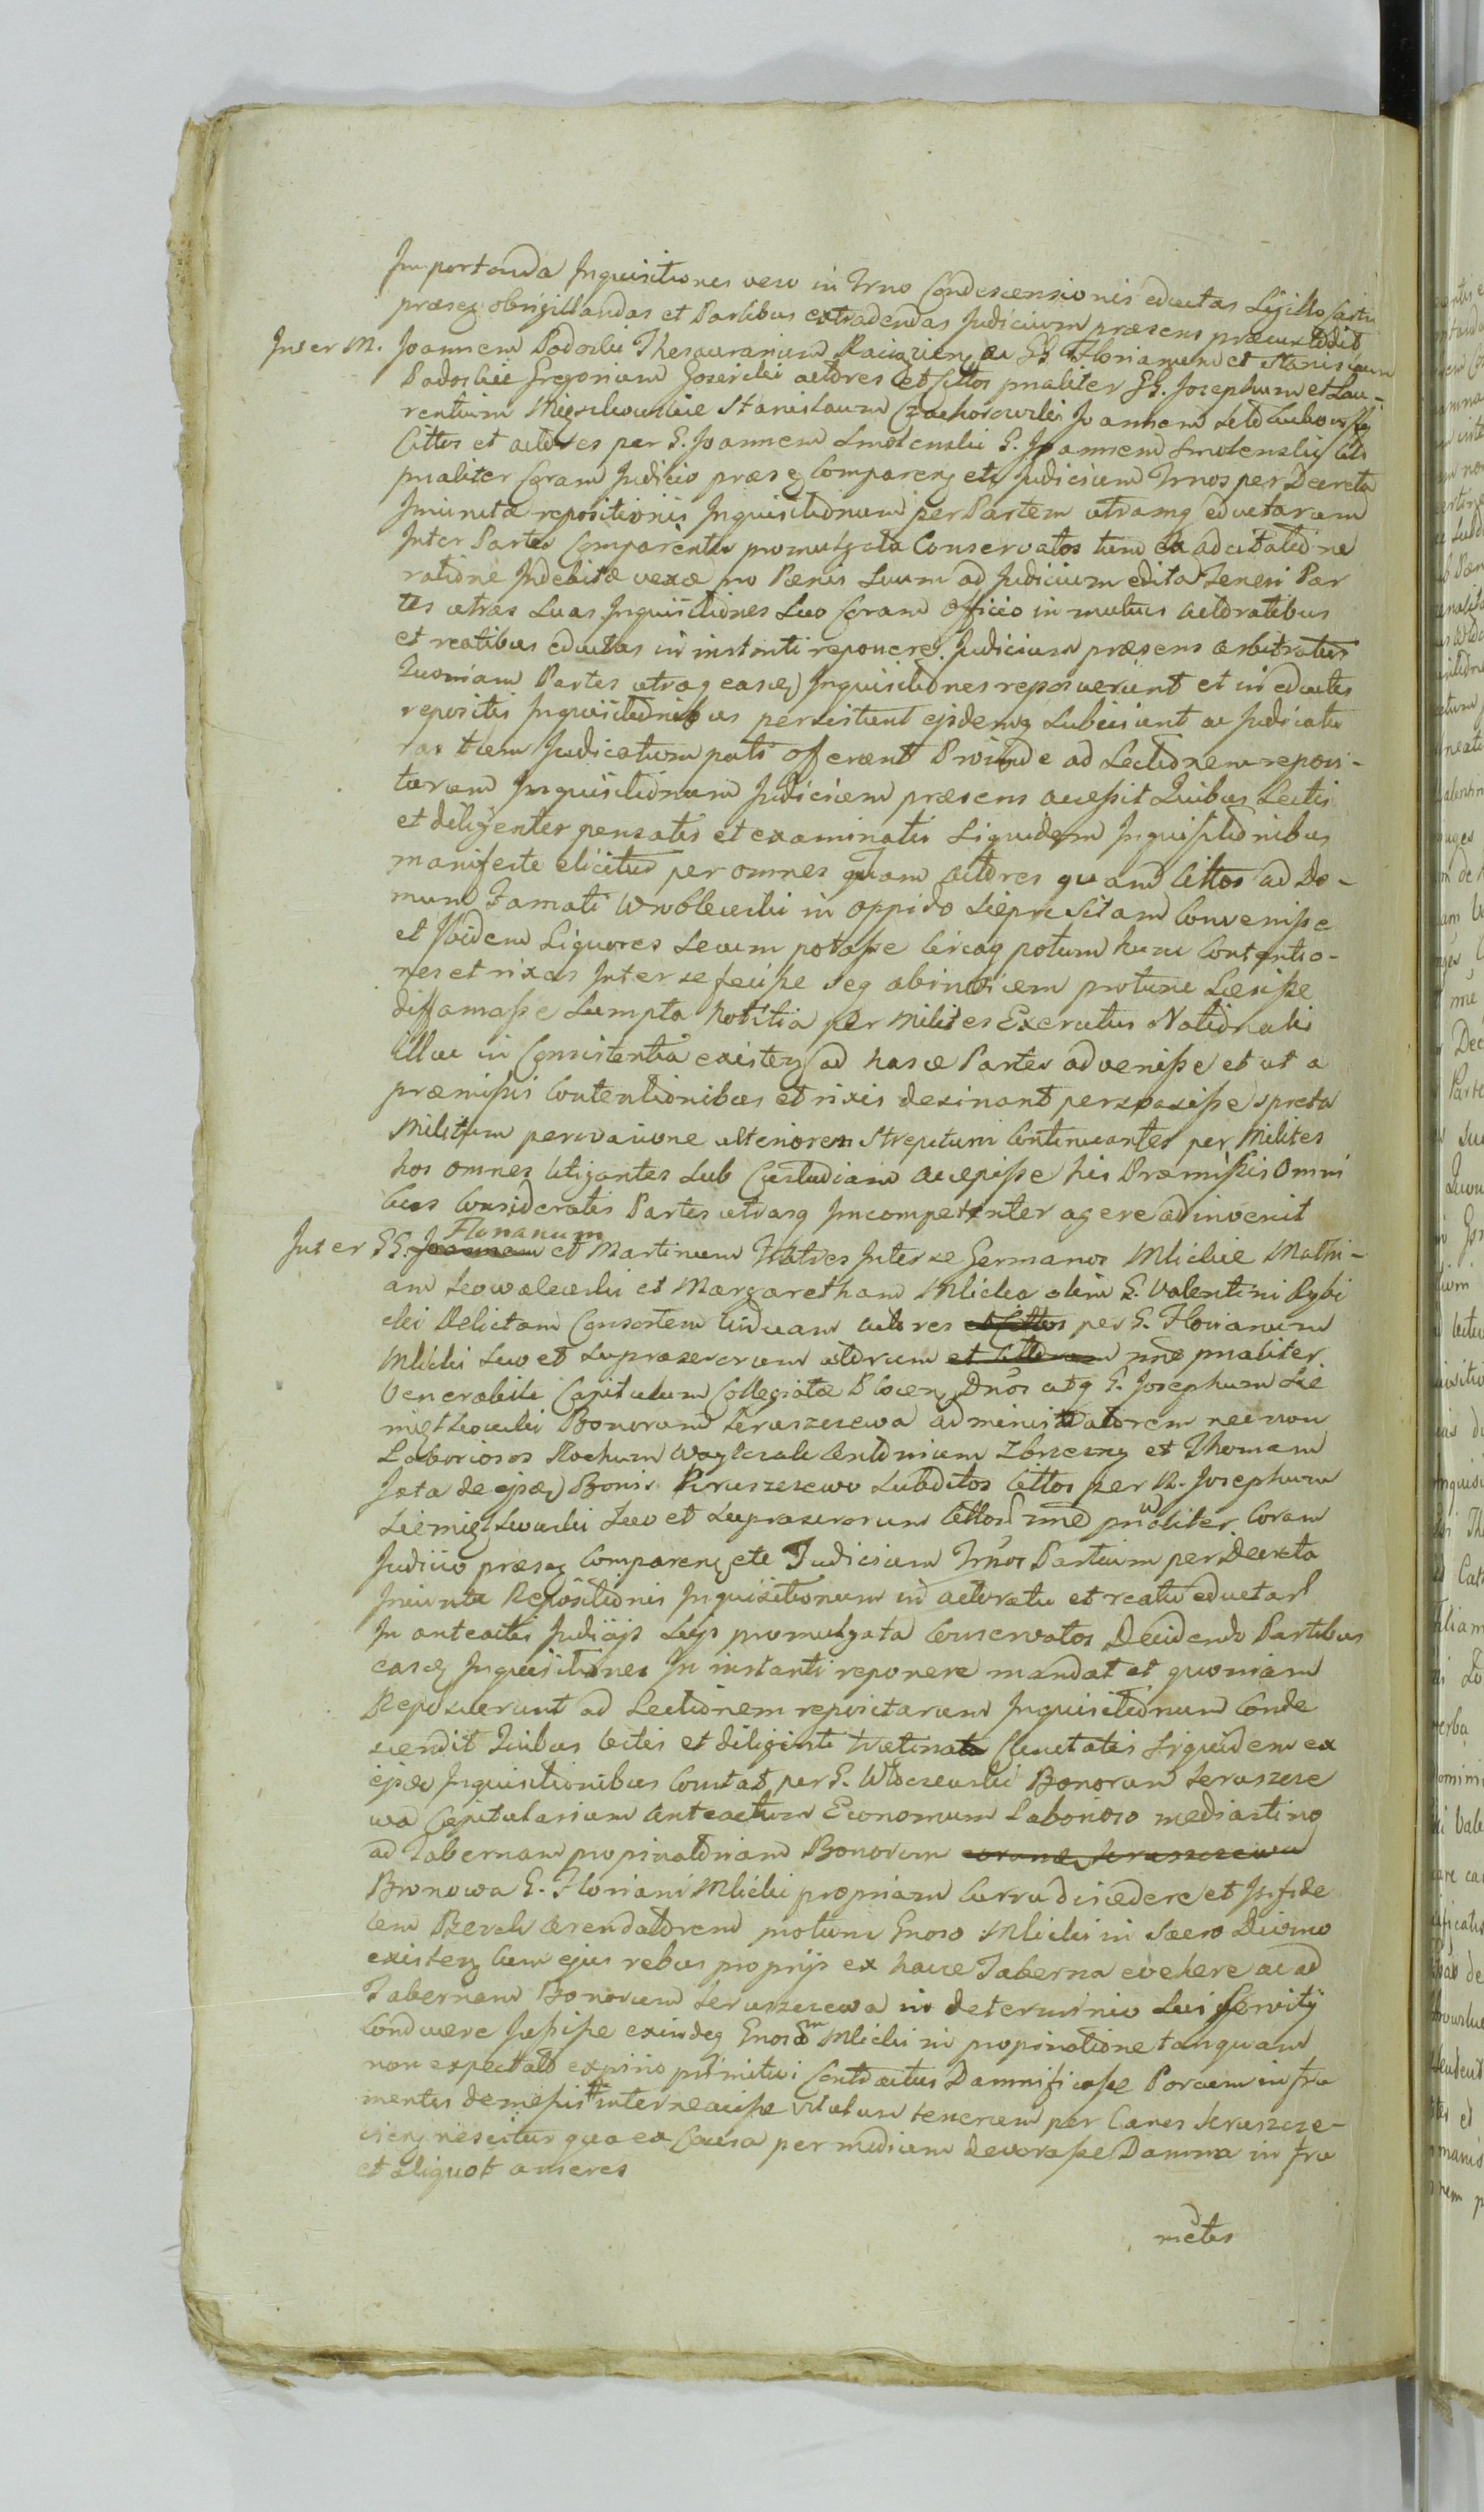 Importanda Inquisitiones vero in Trno Condescensionis eductas Sigillo Castri
præseq obsigillandas et Partibus extradendas Judicium præsens præcustodit
Inter M. Joannem Podoski Thesaurarium Raciązieng ac GG Florianum et Stanislaum
Podoskie Gregorium Gozdcki actores et Cittos pnaliter GG. Josephum et Lau-
rentium Mięszkowskie Stanislaum Czachorowski Joannem
Cittos et actores per G. Joannem Smolenski G. Joannem Smolenski
pnaliter Coram Judicio præseq Compareng etc Judicium Trnos per Decreta
Iniuncta repositionis Inquisitionum per Partem utramq eductarum
Inter Partes Comparentes promulgata Conservatos tum ex adcitatione
ratione Indebitæ vexæ pro Pænis Suum ad Judicium edita Teneri Par
tes utras Suas Inquisitiones Suo Coram Officio in mutuis actoratibus
et reatibus eductas in instanti reponere. Judicium præsens arbitratur
Quoniam Partes utraq easq Inquisitiones reposuerunt et in eductis
repositis Inquisitionibus persistunt ejsdemq Subiiciunt ac Judicatu
ras tum Judicatum pati oferunt Proinde ad Lectionem reposi-
tarum Inquisitionum Judicium præsens accessit Quibus Lectis
et diligenter pensatis et examinatis Siquidem Inquisitionibus
manifeste elicitur per omnes quam actores quam Cittos ad Do-
mum Famati Wroblewski in oppido Sieprc Sitam Convenisse
et Ibidem Liquores Secum potasse Circaq potum hunc Contentio-
nes et rixas Inter se fecisse seq abinvicem protunc Læsisse
diffamasse Sumpta notitia per milites Exercitus Nationalis
illuc in Consistentia existeng ad hasce Partes advenisse et ut a
præmissis Contentionibus et rixis desinant persvasisse spreta
Militum persvasione ulteriorem Strepitum Continuantes per Milites
hos omnes litigantes Sub Custodiam accepisse his Præmissis Omni
bus Consideratis Partes utrasq Incompetenter agere adinvenit
Inter GG. Joannem Florianum et Martinum Fratres Inter se Germanos Mlickie Mathi-
am Kowalewski et Margaretham Mlicka olim G. Valentini Rybi
cki Relictam Consortem Viduam actores et Cittos per G. Florianum
Mlicki Suo et Supraserorum actorum et Cittorum nne pnaliter
Venerabile Capitulum Collegiatæ Plocen Dnos atq G. Josephum Sie
miątkowski Bonorum Kruszczewa administratorem necnon
Laboriosos Rochum Antonium et Thomam
Jæta de ejsdq Bonis Kruszczewo Subditos Cittos per R. Josephum
Siemiątkowski Suo et Supraserorum Cittor nne pnaliter Coram
Judicio præseq Compareng etc Judicium Trnos Partium per Decreta
Iniuncta Repositionis Inquisitionum in actoratu et reatu eductar
In anteactis Judiciis Suis promulgata Conservatos Decidendo Partibus
easq Inquisitiones In instanti reponere mandat et quoniam
Reposuerunt ad Lectionem repositarum Inquisitionum Conde
scendit Quibus lectis et diligenti trutinata Siquidem ex
ejsdq Inquisitionibus Constat per G. Wloczewski Bonorum Kruszcze
wa Capitularium Anteactum Economum Laborioso mediastino
ad Tabernam propinatoriam Bonorum Kruszczewa
Bronowa G. Floriani Mlicki propriam Curru discedere et Infide
lem Berek Arendatorem protunc Gnoso Mlicki in Sacro Divino
existeng Cum ejus rebus proprijs ex hacce Taberna evehere ac ad
Tabernam Bonorum Kruszczewa in deterium Sui Servitij
Conducere Jussisse exindeq Gnosum Mlicki in propinatione tanquam
non expectato expirio primitivi Contractus Damnificasse Porcum in fru
mentis demessis internecisse vitulum tenerum per Canes Kruszcze-
vieng nescitur qua ex Causa per medium devorasse Damna in fru
et aliquot anseres
mentis